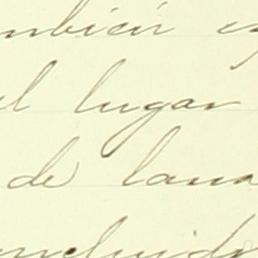 también
el lugar
de lana
concluido